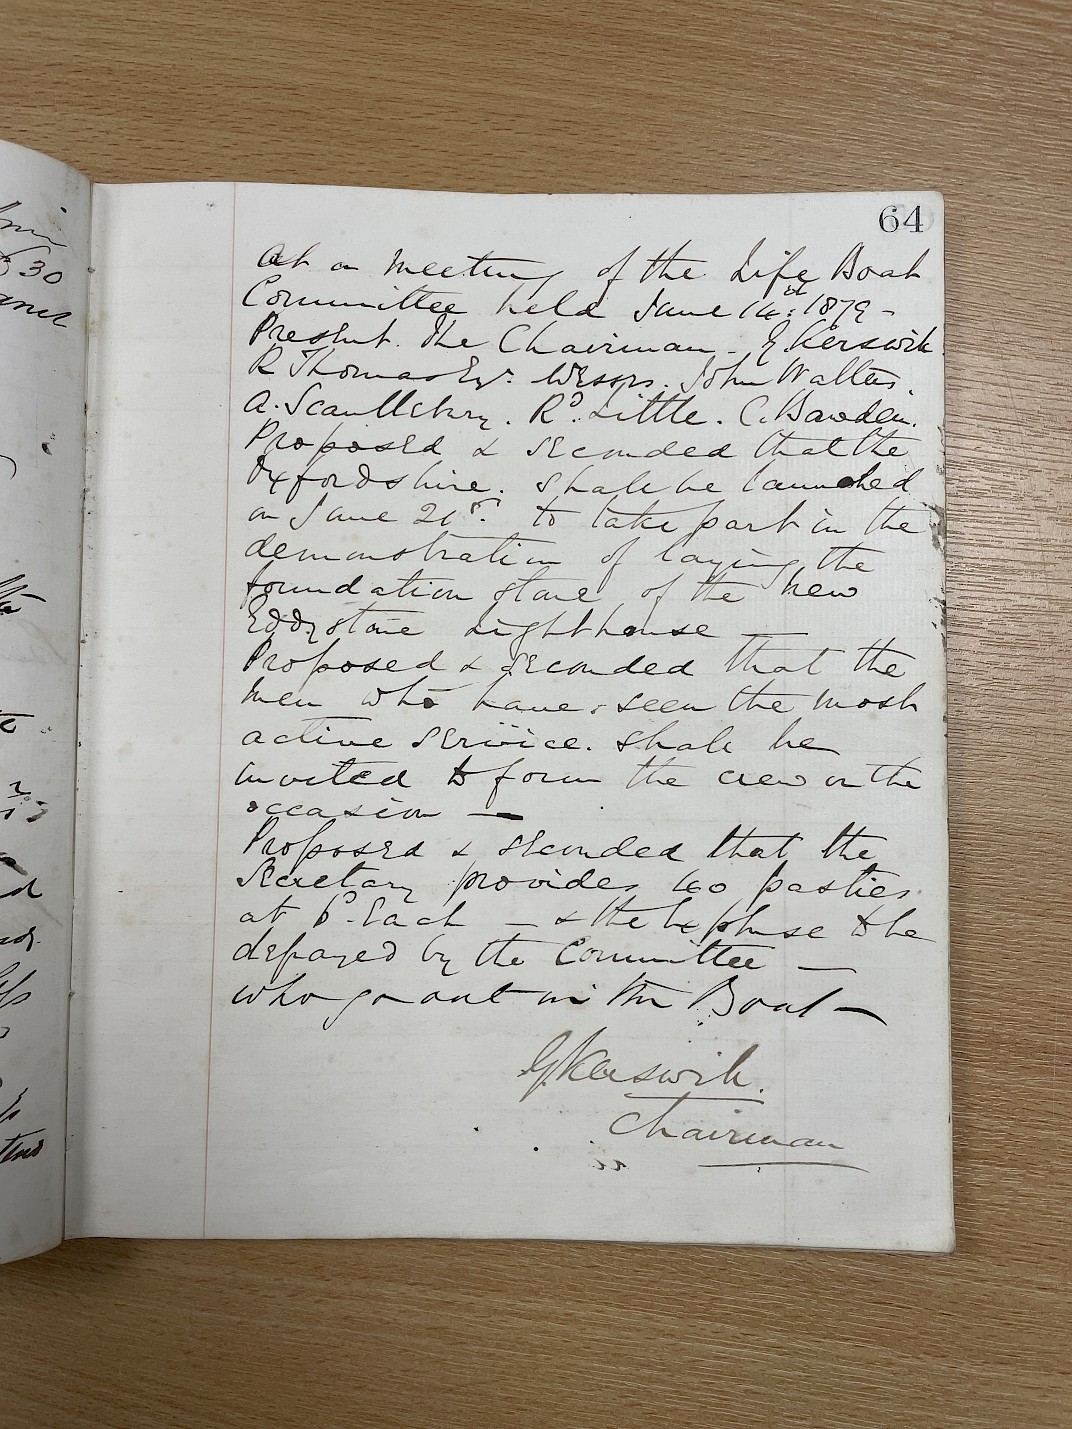 64
At a Meeting of the Life Boat
Committee held June 14th 1879 -
Present. The Chairman - G. Kerswik
R Thomas Esqr. Messrs. John Walters.
A. Scantlebury. Rd. Little. C. Bawden.
Proposed & Seconded that the
Oxfordshire. Shall be launched
on June 21st. to take part in the
demonstration of laying the
foundation stone of the New
Eddystone Lighthouse —
Proposed & Seconded that the
Men who have seen the most
active Service. Shall be
invited to form the crew on the
occasion —
Proposed & Seconded that the
Secretary provides 40 pasties
at 6d. Each — & the Expense to be
defrayed by the Committee —
who go out in the Boat —
G. Kerswik.
Chairman
30